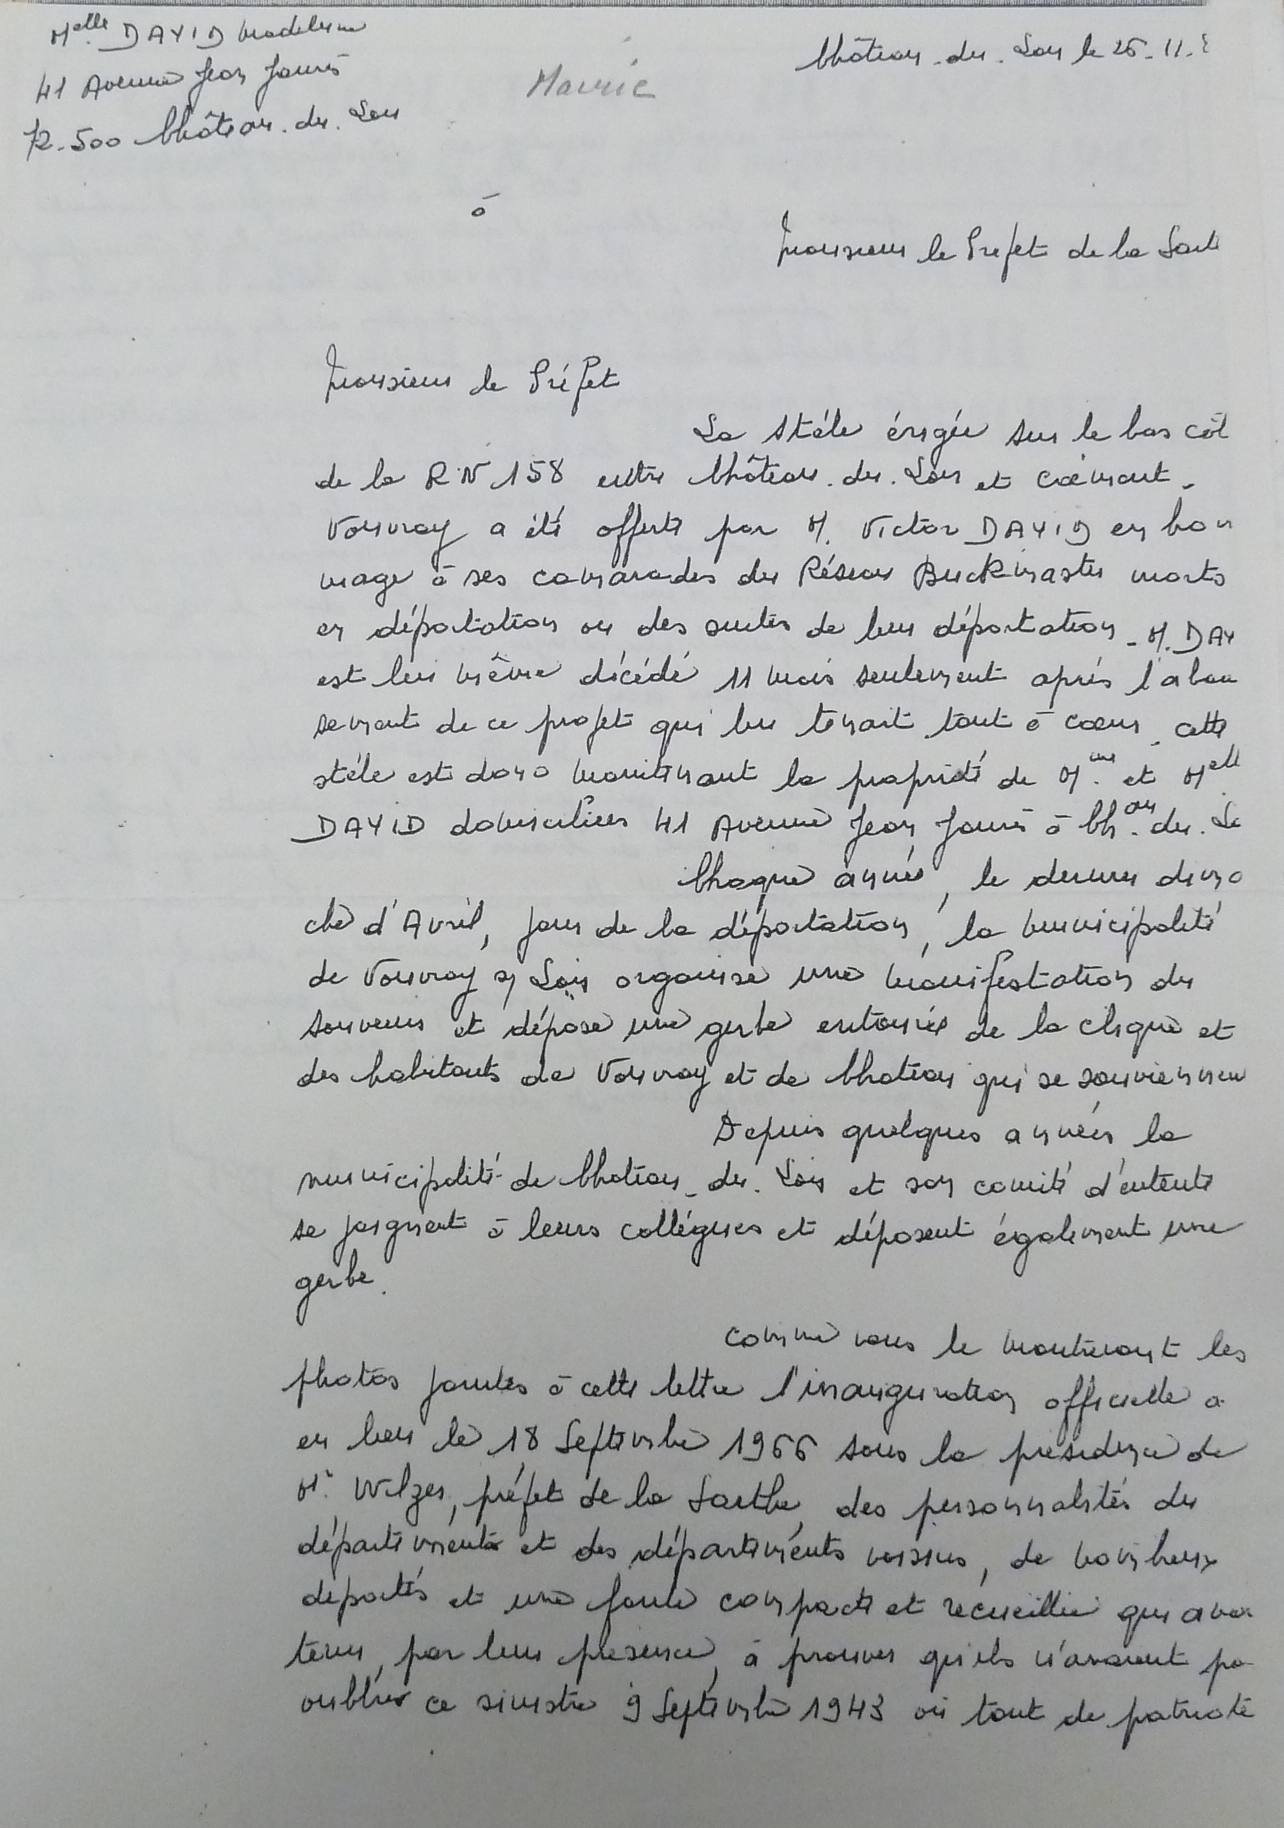 Melle DAVID Madeleine
41 Avenue Jean Jaurès
72-500 Château-du-Loir
Château-du-Loir le 25-11-
Mairie
à
Monsieur le Préfet de la Sart
Monsieur le Préfet
La stèle érigée sur le bas côt
de la RN 158 entre Château-du-Loir et
Vouvray a été offerte par M. Victor DAVID en hom
mage à ses camarades du Réseau Buckmaster morts
en déportation ou des suites de leur déportation - M. DAV
est lui même décédé 11 mois seulement après l'abou
sement de ce projet qui lui tenait tant à cœur. cette
stèle est donc maintenant la propriété de Mme et Melle
DAVID domiciliées 41 Avenue Jean Jaurès à Chau-du-Lo
Chaque année, le dernier diman
che d'Avril, jour de la déportation, la municipalité
de Vouvray s/ Loir organise une manifestation du
souvenir et dépose une gerbe entourée de la clique et
des habitants de Vouvray et de Château qui se souviennen
Depuis quelques années la
municipalité de Château-du-Loir et son comité d'entente
se joignent à leurs collègues et déposent également une
gerbe.
Comme vous le montreront les
photos jointes à cette lettre l'inauguration officielle a
eu lieu le 18 Septembre 1966 sous la présidence de
Mr. préfet de la Sarthe, des personnalités du
département et des départements voisins, de nombreux
déportés et une foule compacte et recueillie qui avai
tenu, par leur présence, à prouver qu'ils n'avaient pa
oublier ce sinistre 9 Septembre 1943 où tant de patriote